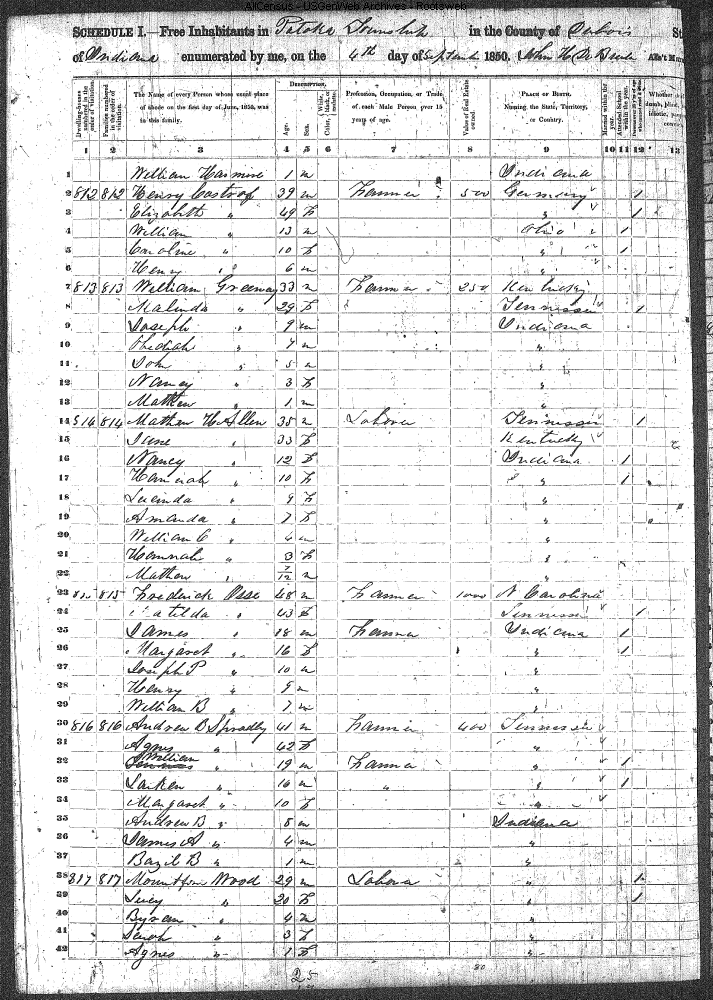 AllCensus - USGenWeb Archives - Rootsweb
SCHEDULE I.—Free Inhabitants in Patoka Township in the County of Dubois St
of Indiana enumerated by me, on the 4th day of September 1850. John H. Ass't Mar
Dwelling-houses numbered in the order of visitation. Families numbered in the order of visitation. The Name of every Person whose usual place of abode on the first day of June, 1850, was in this family. DESCRIPTION. Age. Sex. White, black, or mulatto. Color. Profession, Occupation, or Trade of each Male Person over 15 years of age. Value of Real Estate owned. PLACE OF BIRTH. Naming the State, Territory, or Country. Married within the year. Attended School within the year. Whether
1 2 3 4 5 6 7 8 9 10 11 12 13
1 William 1 m Indiana
2 812 812 Henry 39 m Farmer 500 Germany 1
3 Elizabeth " 49 F " 1
4 William " 13 m Ohio 1
5 Caroline " 10 F " 1
6 Henry " 6 m "
7 813 813 William Greenway 33 m Farmer 250 Kentucky
8 Malinda " 29 F Tennessee 1
9 Joseph " 9 m Indiana
10 Obediah " 7 m "
11 John " 5 m "
12 Nancy " 3 F "
13 Mathew " 1 m "
14 814 814 Mathew H Allen 35 m Labora Tennessee 1
15 Jane " 33 F Kentucky
16 Nancy " 12 F Indiana 1
17 Hannah " 10 F " 1
18 Lucinda " 9 F "
19 Amanda " 7 F "
20 William C " 4 m "
21 Hannah " 3 F "
22 Mathew " 7/12 m "
23 815 815 Frederick 48 m Farmer 1000 N Carolina
24 Matilda " 43 F Tennessee 1
25 James " 18 m Farmer Indiana 1
26 Margaret " 16 F " 1
27 Joseph P " 10 m "
28 Henry " 9 m "
29 William B " 7 m "
30 816 816 Andrew B Spradley 41 m Farmer 400 Tennessee
31 Agnes " 42 F "
32 William " 19 m Farmer " 1
33 Larken " 16 m " " 1
34 Margaret " 10 F "
35 Andrew B " 8 m Indiana
36 James A " 4 m "
37 Bazil B " 1 m "
38 817 817 Wood 29 m Labora " 1
39 Lucy " 20 F " 1
40 Byram " 4 m "
41 Sarah " 3 F "
42 Agnes " 1 F "